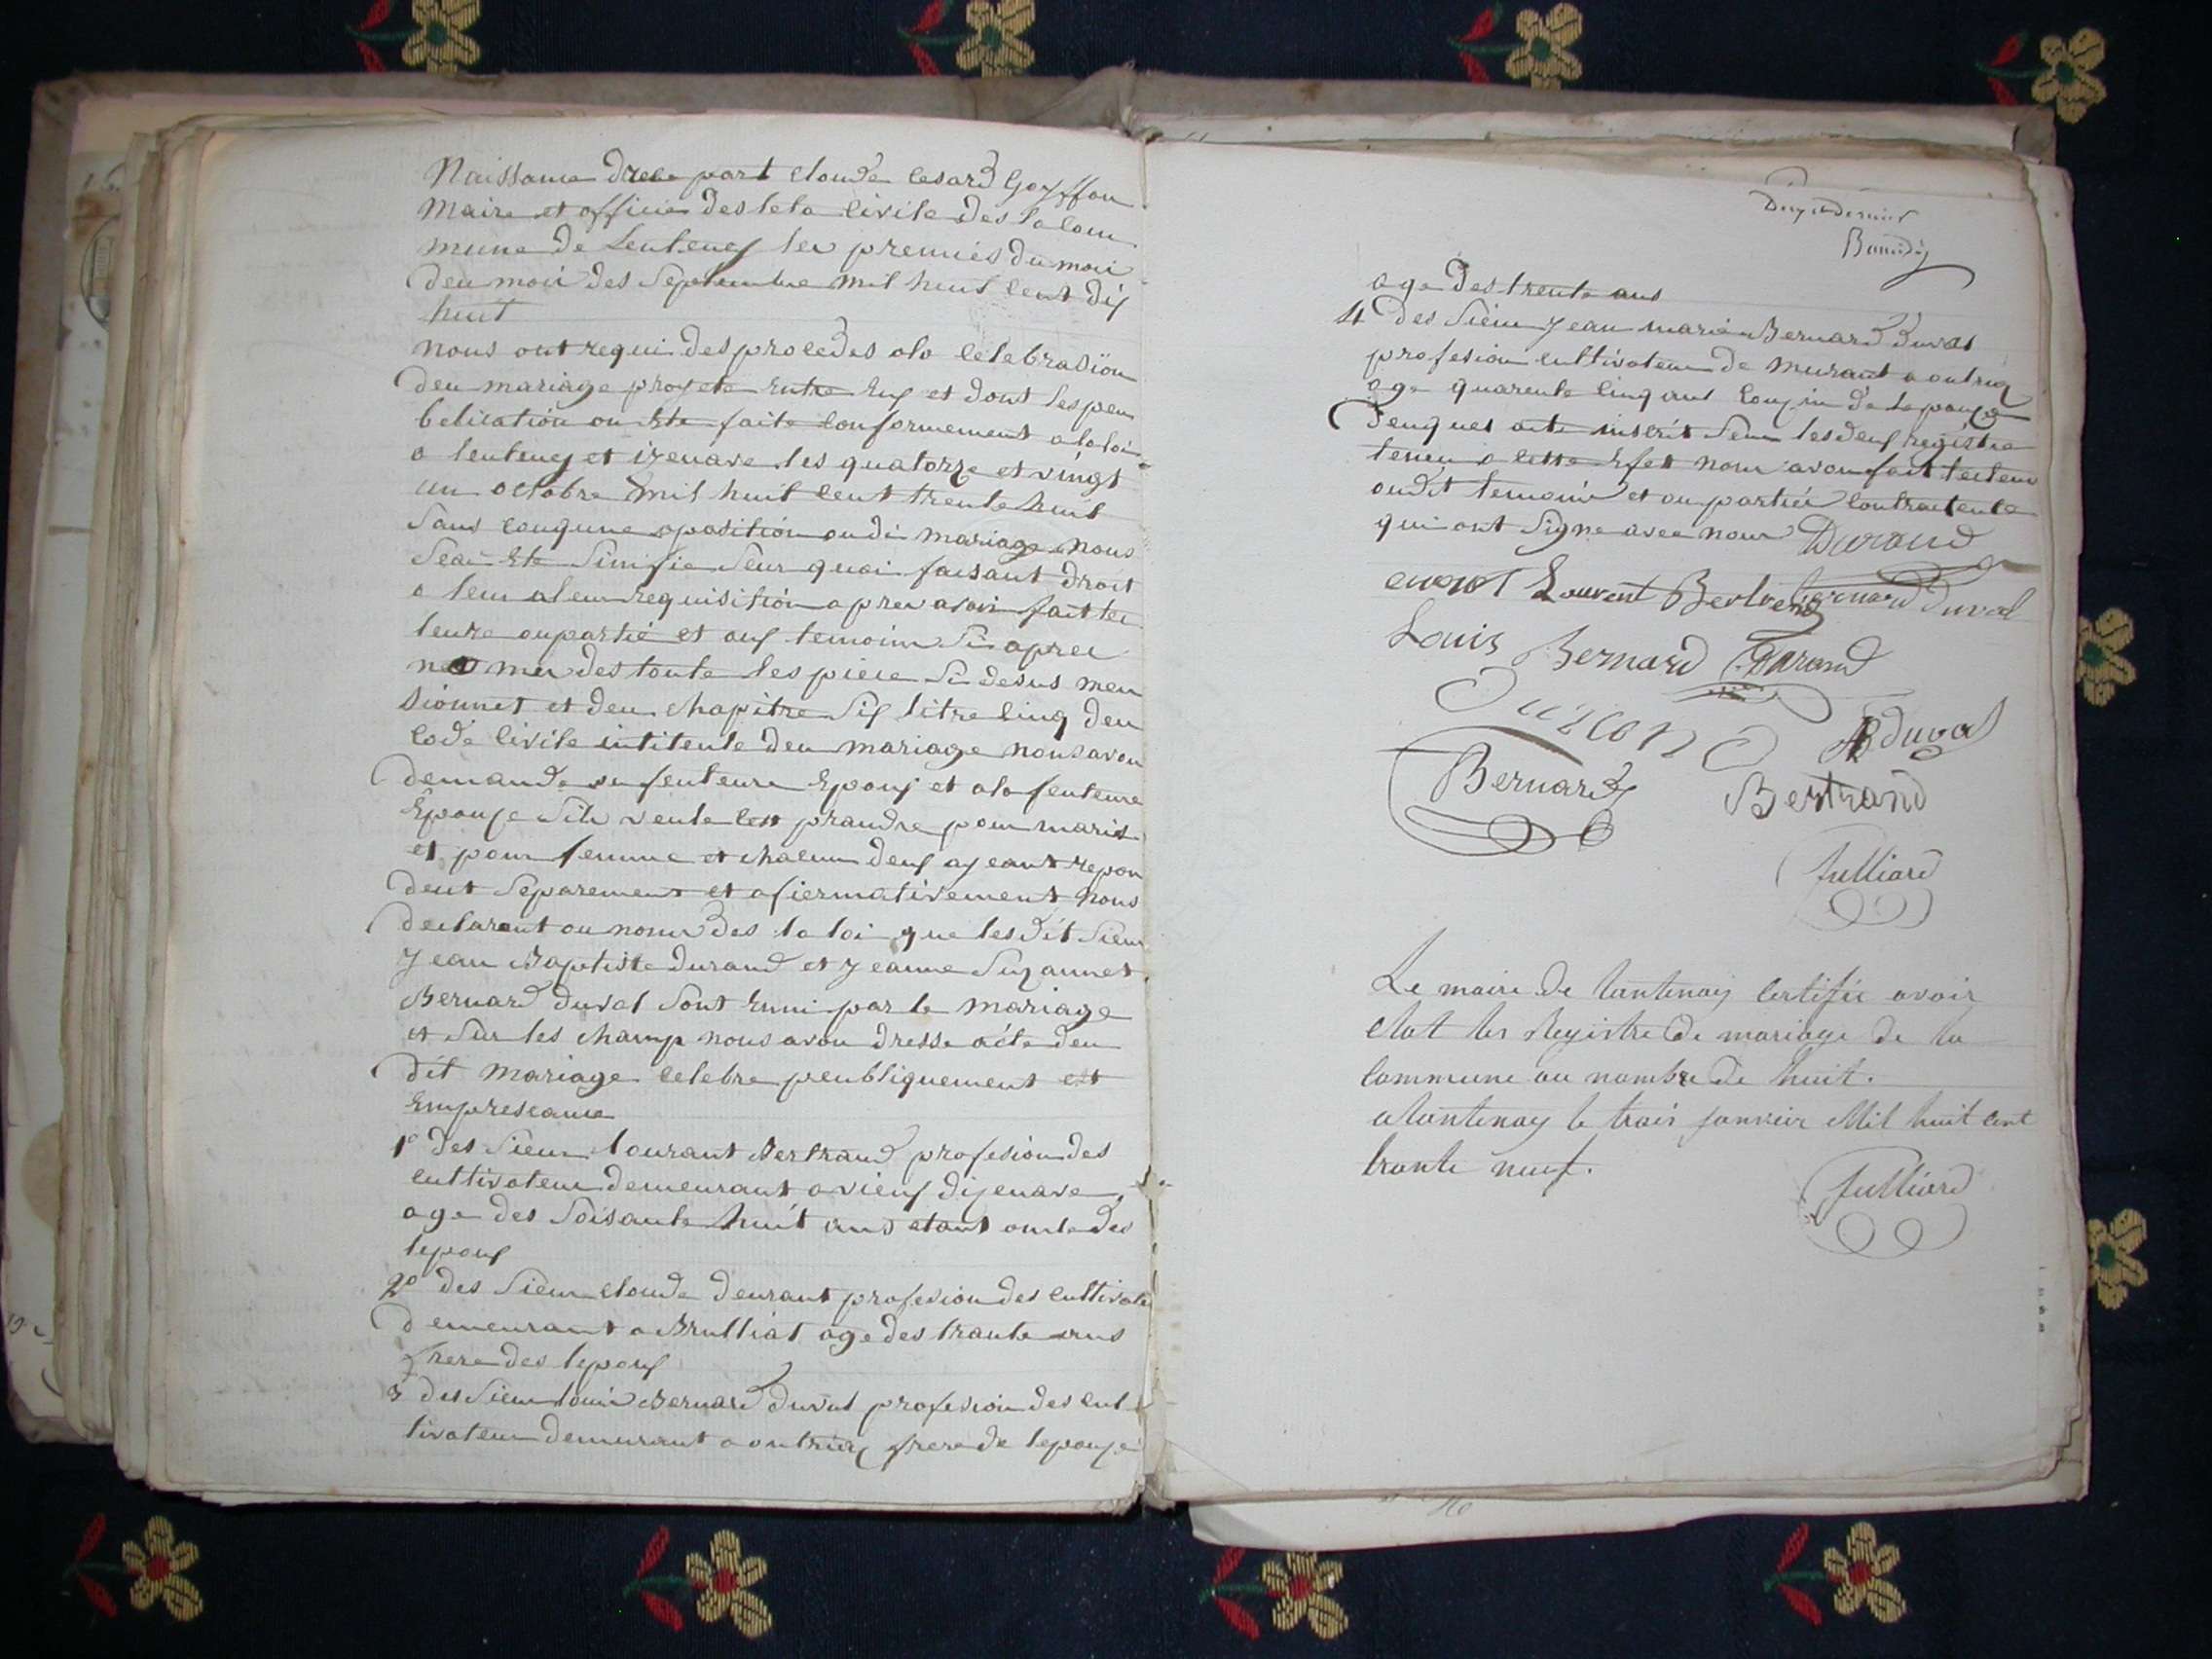 Naissance drese part Claude Cesard Goyffon
Maire et officie des leta Civile des la Com
mune de Lentenes les premies du moi
deu moi des Septembre mil huit Cent dis
huit
nous ont requi des procedes a la Celebrasion
deu mariage projete Entre Eux et dont les peu
belication on Ete faite Conformement a la loi
a lentenes et izenave les quatorze et vingt
un octobre mil huit Cent trente huit
Sans aposition oudi mariage nous
Seai Ete Sinifie Seur quoi faisant droit
a leur requisition apres avoir fait lec
teure ou partie et aus temoins Si apres
nomes des toute les piece Si desus men
Sionnet et deu Chapitre Six titre Cinq deu
Code Civile intiteule deu mariage nous avon
demande feuteure Epoux et a la feuteure
Epouse Sils veule prandre pour maris
et pour femme et chacun deux ayeant repon
deut Separement et afiermativement nous
declarant ou nom des la loi que les dit Sieur
Jean Baptiste durand et Jeanne Suzannet
Bernard duval Sont Euni par le mariage
et Sur les champ nous avon dresse acte deu
dit mariage Celebre peubliquement
Empresence
1° des Sieur lourant Bertrand profesion des
cultivateur demeurant a vieux dizenave
age des Soisante huit ans etant oncle des
lepoux
2° des Sieur Claude deurant profesion des cultivate
demeurant a Brulliat age des trante ans
frere des lepoux
3 des Sieur louis Bernard duval profesion des cul
tivateur demeurant a outriaz frere de lepouse
Bernardy
age des trente ans
4 des Sieur Jean marie Bernard duval
profesion cultivateur de murant a outriaz
age quarente Cinq ans Cousin de lepouse
deuquel acte inscrit Seur les deux registre
teneu a cette Efet nous avon fait lecteur
oudit temoin et ou partie Contractente
qui ont Signe avec nous Durand
Lourent Bertrend bernard duval
Louis Bernard Durand
Durand Duval
Bernard Bertrand
Julliard
Le maire de lantenay Certifie avoir
Clot les Registre de mariage de la
Commune au nombre de huit.
a lantenay le trois janvier Mil huit Cent
trente neuf.
Julliard